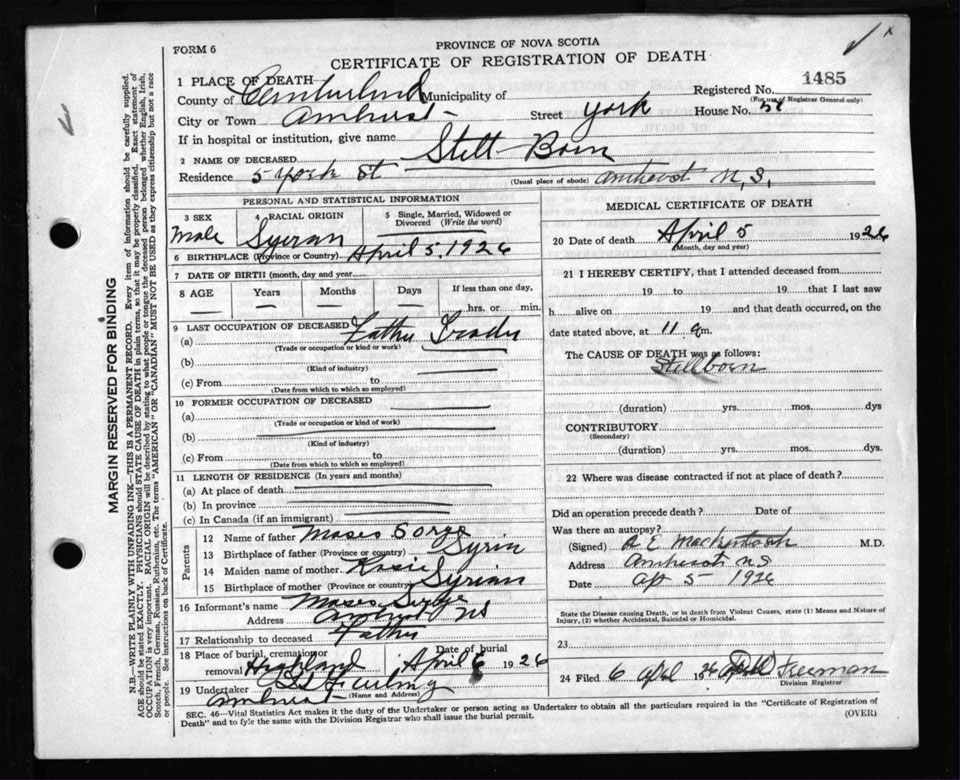 FORM 6
PROVINCE OF NOVA SCOTIA
CERTIFICATE OF REGISTRATION OF DEATH
1485
1 PLACE OF DEATH
Registered No.
(For use of Registrar General only)
County of Cumberland Municipality of
City or Town Amherst Street York House No. 5
If in hospital or institution, give name
2 NAME OF DECEASED Still Born
Residence 5 York St (Usual place of abode) Amherst N.S.
PERSONAL AND STATISTICAL INFORMATION
3 SEX 4 RACIAL ORIGIN 5 Single, Married, Widowed or Divorced (Write the word)
Male Syrian
6 BIRTHPLACE (Province or Country) April 5, 1926
7 DATE OF BIRTH (month, day and year)
8 AGE Years Months Days If less than one day,
hrs. or min.
9 LAST OCCUPATION OF DECEASED Father
(a)
(Trade or occupation or kind or work)
(b)
(Kind of industry)
(c) From to
(Date from which to which so employed)
10 FORMER OCCUPATION OF DECEASED
(a)
(Trade or occupation or kind of work)
(b)
(Kind of industry)
(c) From to
(Date from which to which so employed)
11 LENGTH OF RESIDENCE (In years and months)
(a) At place of death
(b) In province
(c) In Canada (if an immigrant)
Parents
12 Name of father Moses
13 Birthplace of father (Province or country) Syria
14 Maiden name of mother Rosie
15 Birthplace of mother (Province or country) Syrian
16 Informant's name Moses
Address Amherst NS
17 Relationship to deceased Father
18 Place of burial, cremation or removal Highland Date of burial April 6 1926
19 Undertaker
(Name and Address)
Amherst
MEDICAL CERTIFICATE OF DEATH
20 Date of death April 5 1926
(Month, day and year)
21 I HEREBY CERTIFY, that I attended deceased from
19 to 19 that I last saw
h alive on 19 and that death occurred, on the
date stated above, at 11 m.
The CAUSE OF DEATH was as follows:
Stillborn
(duration) yrs. mos. dys
CONTRIBUTORY
(Secondary)
(duration) yrs. mos. dys
22 Where was disease contracted if not at place of death?
Did an operation precede death? Date of
Was there an autopsy?
(Signed) A E Mackintosh M.D.
Address Amherst NS
Date Ap 5 1926
State the Disease causing Death, or in death from Violent Causes, state (1) Means and Nature of Injury, (2) whether Accidental, Suicidal or Homicidal.
23
24 Filed 6 April 1926 Freeman
Division Registrar
SEC. 46—Vital Statistics Act makes it the duty of the Undertaker or person acting as Undertaker to obtain all the particulars required in the "Certificate of Registration of
Death" and to fyle the same with the Division Registrar who shall issue the burial permit. (OVER)
MARGIN RESERVED FOR BINDING
N.B.—WRITE PLAINLY WITH UNFADING INK—THIS IS A PERMANENT RECORD. Every item of information should be carefully supplied.
AGE should be stated EXACTLY. PHYSICIANS should STATE CAUSE OF DEATH in plain terms, so that it may be properly classified. Exact statement of
OCCUPATION is very important. RACIAL ORIGIN will be described by stating to what people or tongue the deceased person belonged whether English, Irish,
Scotch, French, German, Russian, Ruthenian, etc. The terms "AMERICAN" OR "CANADIAN" MUST NOT BE USED as they express citizenship but not a race
or people. See instructions on back of Certificate.